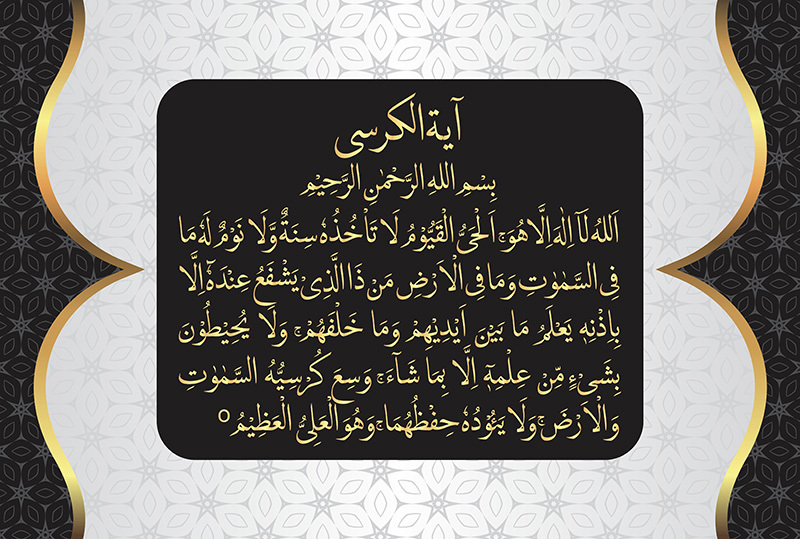 آية الكرسى
بِسْمِ اللهِ الرَّحْمٰنِ الرَّحِيْمِ
اَللهُ لَآ اِلٰهَ اِلَّا هُوَۚ اَلْحَىُّ الْقَيُّوْمُ لَا تَاْخُذُهٗ سِنَةٌ وَّلَا نَوْمٌ لَهٗ مَا
فِى السَّمٰوٰتِ وَمَا فِى الْاَرْضِ مَنْ ذَا الَّذِىْ يَشْفَعُ عِنْدَهٗٓ اِلَّا
بِاِذْنِهٖ يَعْلَمُ مَا بَيْنَ اَيْدِيْهِمْ وَمَا خَلْفَهُمْۚ وَلَا يُحِيْطُوْنَ
بِشَىْءٍ مِّنْ عِلْمِهٖٓ اِلَّا بِمَا شَآءَۚ وَسِعَ كُرْسِيُّهُ السَّمٰوٰتِ
وَالْاَرْضَۚ وَلَا يَئُوْدُهٗ حِفْظُهُمَاۚ وَهُوَ الْعَلِىُّ الْعَظِيْمُ ○